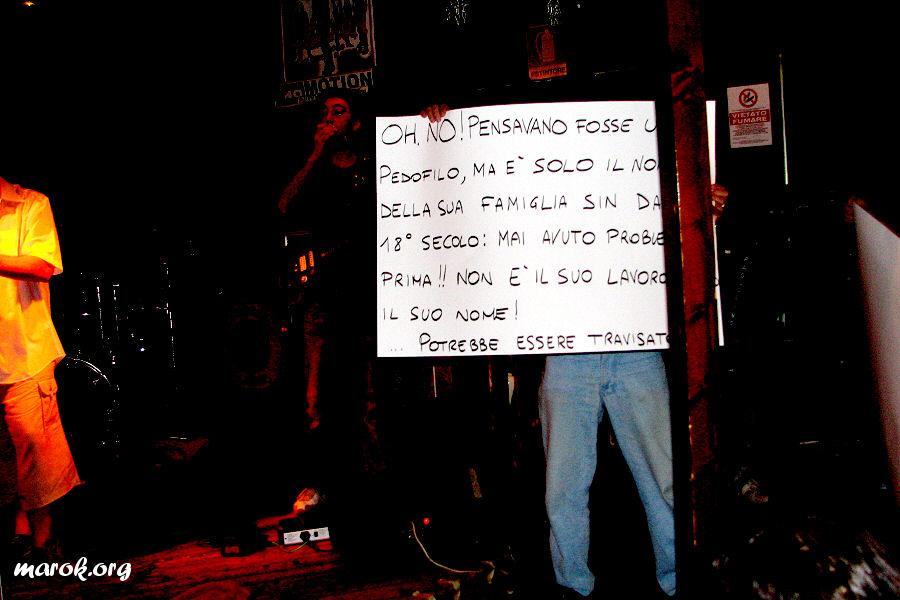 EMOTION
ESTINTORE
VIETATO
FUMARE
OH, NO! PENSAVANO FOSSE U
PEDOFILO, MA E` SOLO IL NO
DELLA SUA FAMIGLIA SIN DA
18° SECOLO: MAI AVUTO PROBLE
PRIMA!! NON E` IL SUO LAVORO
IL SUO NOME!
... POTREBBE ESSERE TRAVISATO
marok.org